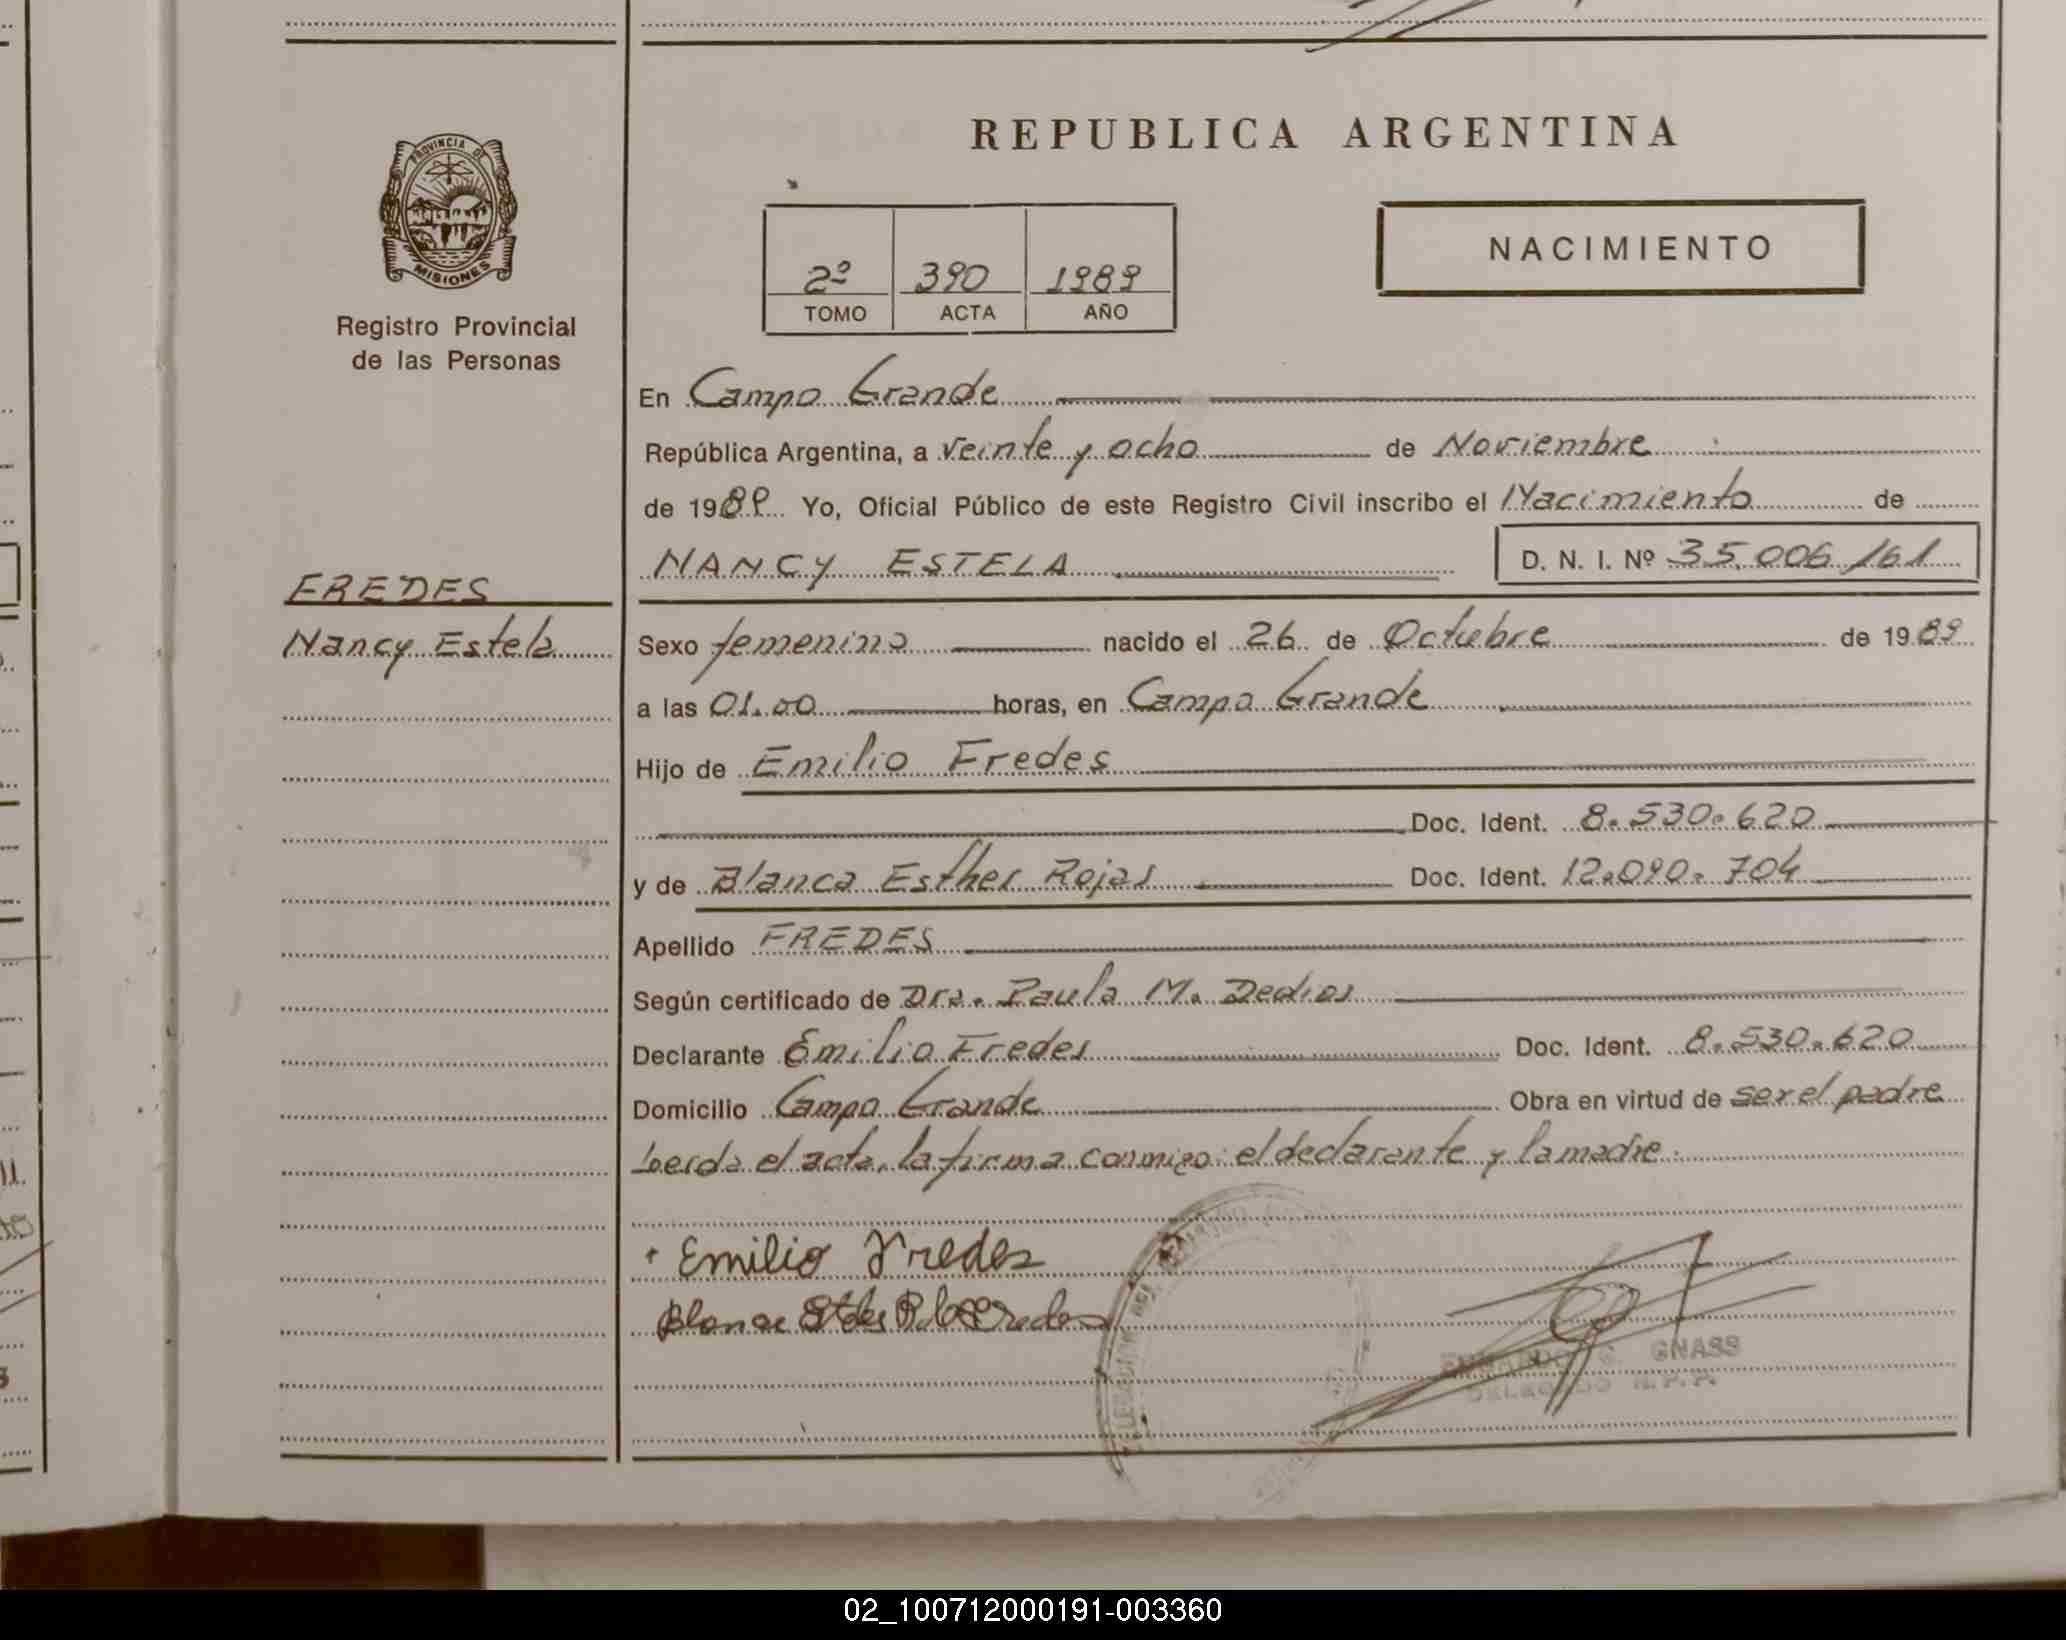 REPUBLICA ARGENTINA
PROVINCIA DE
MISIONES
Registro Provincial
de las Personas
2º 390 1989
TOMO ACTA AÑO
NACIMIENTO
En Campo Grande
República Argentina, a veinte y ocho de Noviembre
de 1989 Yo, Oficial Público de este Registro Civil inscribo el Nacimiento de
NANCY ESTELA D. N. I. Nº 35.006.161
FREDES
Nancy Estela
Sexo femenino nacido el 26 de Octubre de 1989
a las 01.00 horas, en Campo Grande
Hijo de Emilio Fredes
Doc. Ident. 8.530.620
y de Blanca Esther Rojas Doc. Ident. 12.090.704
Apellido FREDES
Según certificado de Dra. Paula M. Dedios
Declarante Emilio Fredes Doc. Ident. 8.530.620
Domicilio Campo Grande Obra en virtud de ser el padre
Leida el acta, la firma conmigo: el declarante y la madre.
Emilio Fredes
GNASS
02_100712000191-003360